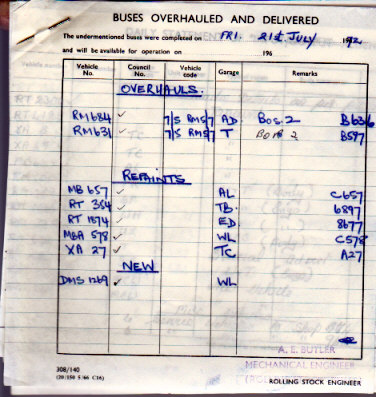 BUSES OVERHAULED AND DELIVERED
The undermentioned buses were completed on FRI. 21st JULY 1972
and will be available for operation on 196
Vehicle No. Council No. Vehicle code Garage Remarks
OVERHAULS.
RM684 ✓ 7/5 RM5/7 AD BOS.2 B636
RM631 ✓ 7/5 RM5/7 T BOS 2 B597
REPAINTS
MB 657 ✓ AL C657
RT 354 ✓ TB. 6897
RT 1874 ✓ ED 8677
MBA 578 ✓ WL C578
XA 27 ✓ TC A27
NEW
DMS 1269 ✓ WL
A. E. BUTLER
MECHANICAL ENGINEER
ROLLING STOCK ENGINEER
308/140
(20/150 5/66 C16)